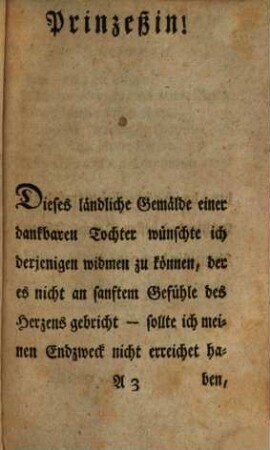 Prinzeßin!
Dieses ländliche Gemälde einer
dankbaren Tochter wünschte ich
derjenigen widmen zu können, der
es nicht an sanftem Gefühle des
Herzens gebricht — sollte ich mei-
nen Endzweck nicht erreichet ha-
A 3 ben,